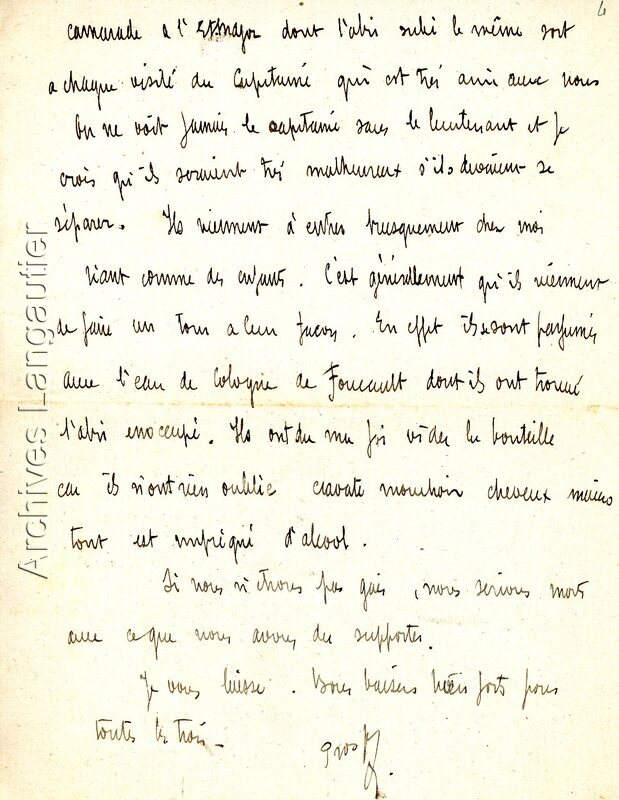 4
camarade a l'Et Major dont l'abri subi le même sort
a chaque visite du Capitaine qui est très ami avec nous
On ne voit jamais le capitaine sans le lieutenant et je
crois qu'ils seraient très malheureux s'ils devaient se
séparer. Ils viennent d'entrer brusquement chez moi
riant comme des enfants. C'est généralement qu'ils viennent
de faire un tour a leur facon. En effet ils se sont parfumés
avec l'eau de Cologne de Foucault dont ils ont trouvé
l'abri inoccupé. Ils ont du ma foi vider la bouteille
car ils n'ont rien oublié cravate mouchoir cheveux mains
tout est imprégné d'alcool.
Si nous n'etions pas gais, nous serions morts
avec ce que nous avons du supporter.
Je vous laisse. Bons baisers bien forts pour
toutes les trois.
gros
Archives Langautier